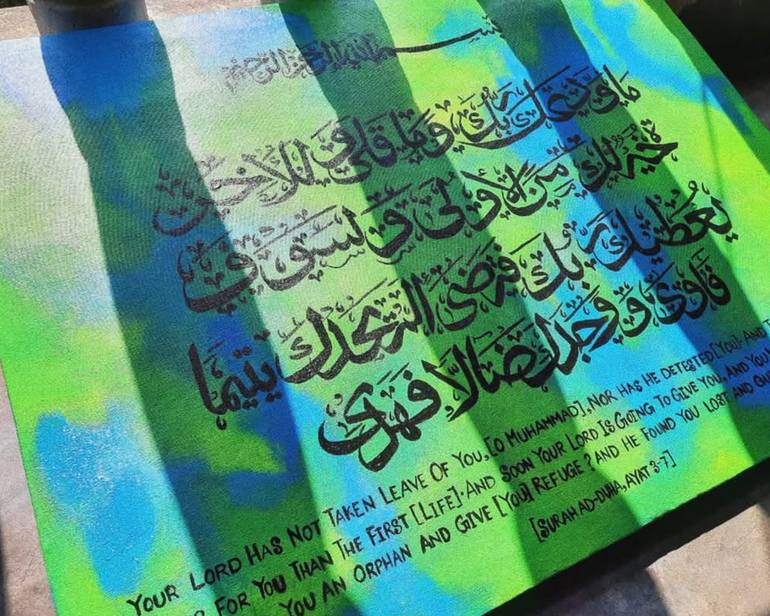 بسم الله الرحمن الرحيم
ما ودعك ربك وما قلى وللآخرة
خير لك من الأولى ولسوف
يعطيك ربك فترضى ألم يجدك يتيما
فآوى ووجدك ضالا فهدى
YOUR LORD HAS NOT TAKEN LEAVE OF YOU, [O MUHAMMAD], NOR HAS HE DETESTED [YOU]. AND
FOR YOU THAN THE FIRST [LIFE]. AND SOON YOUR LORD IS GOING TO GIVE YOU, AND YOU
YOU AN ORPHAN AND GIVE [YOU] REFUGE? AND HE FOUND YOU LOST AND
[SURAH AD-DUHA, AYAT 3-7]